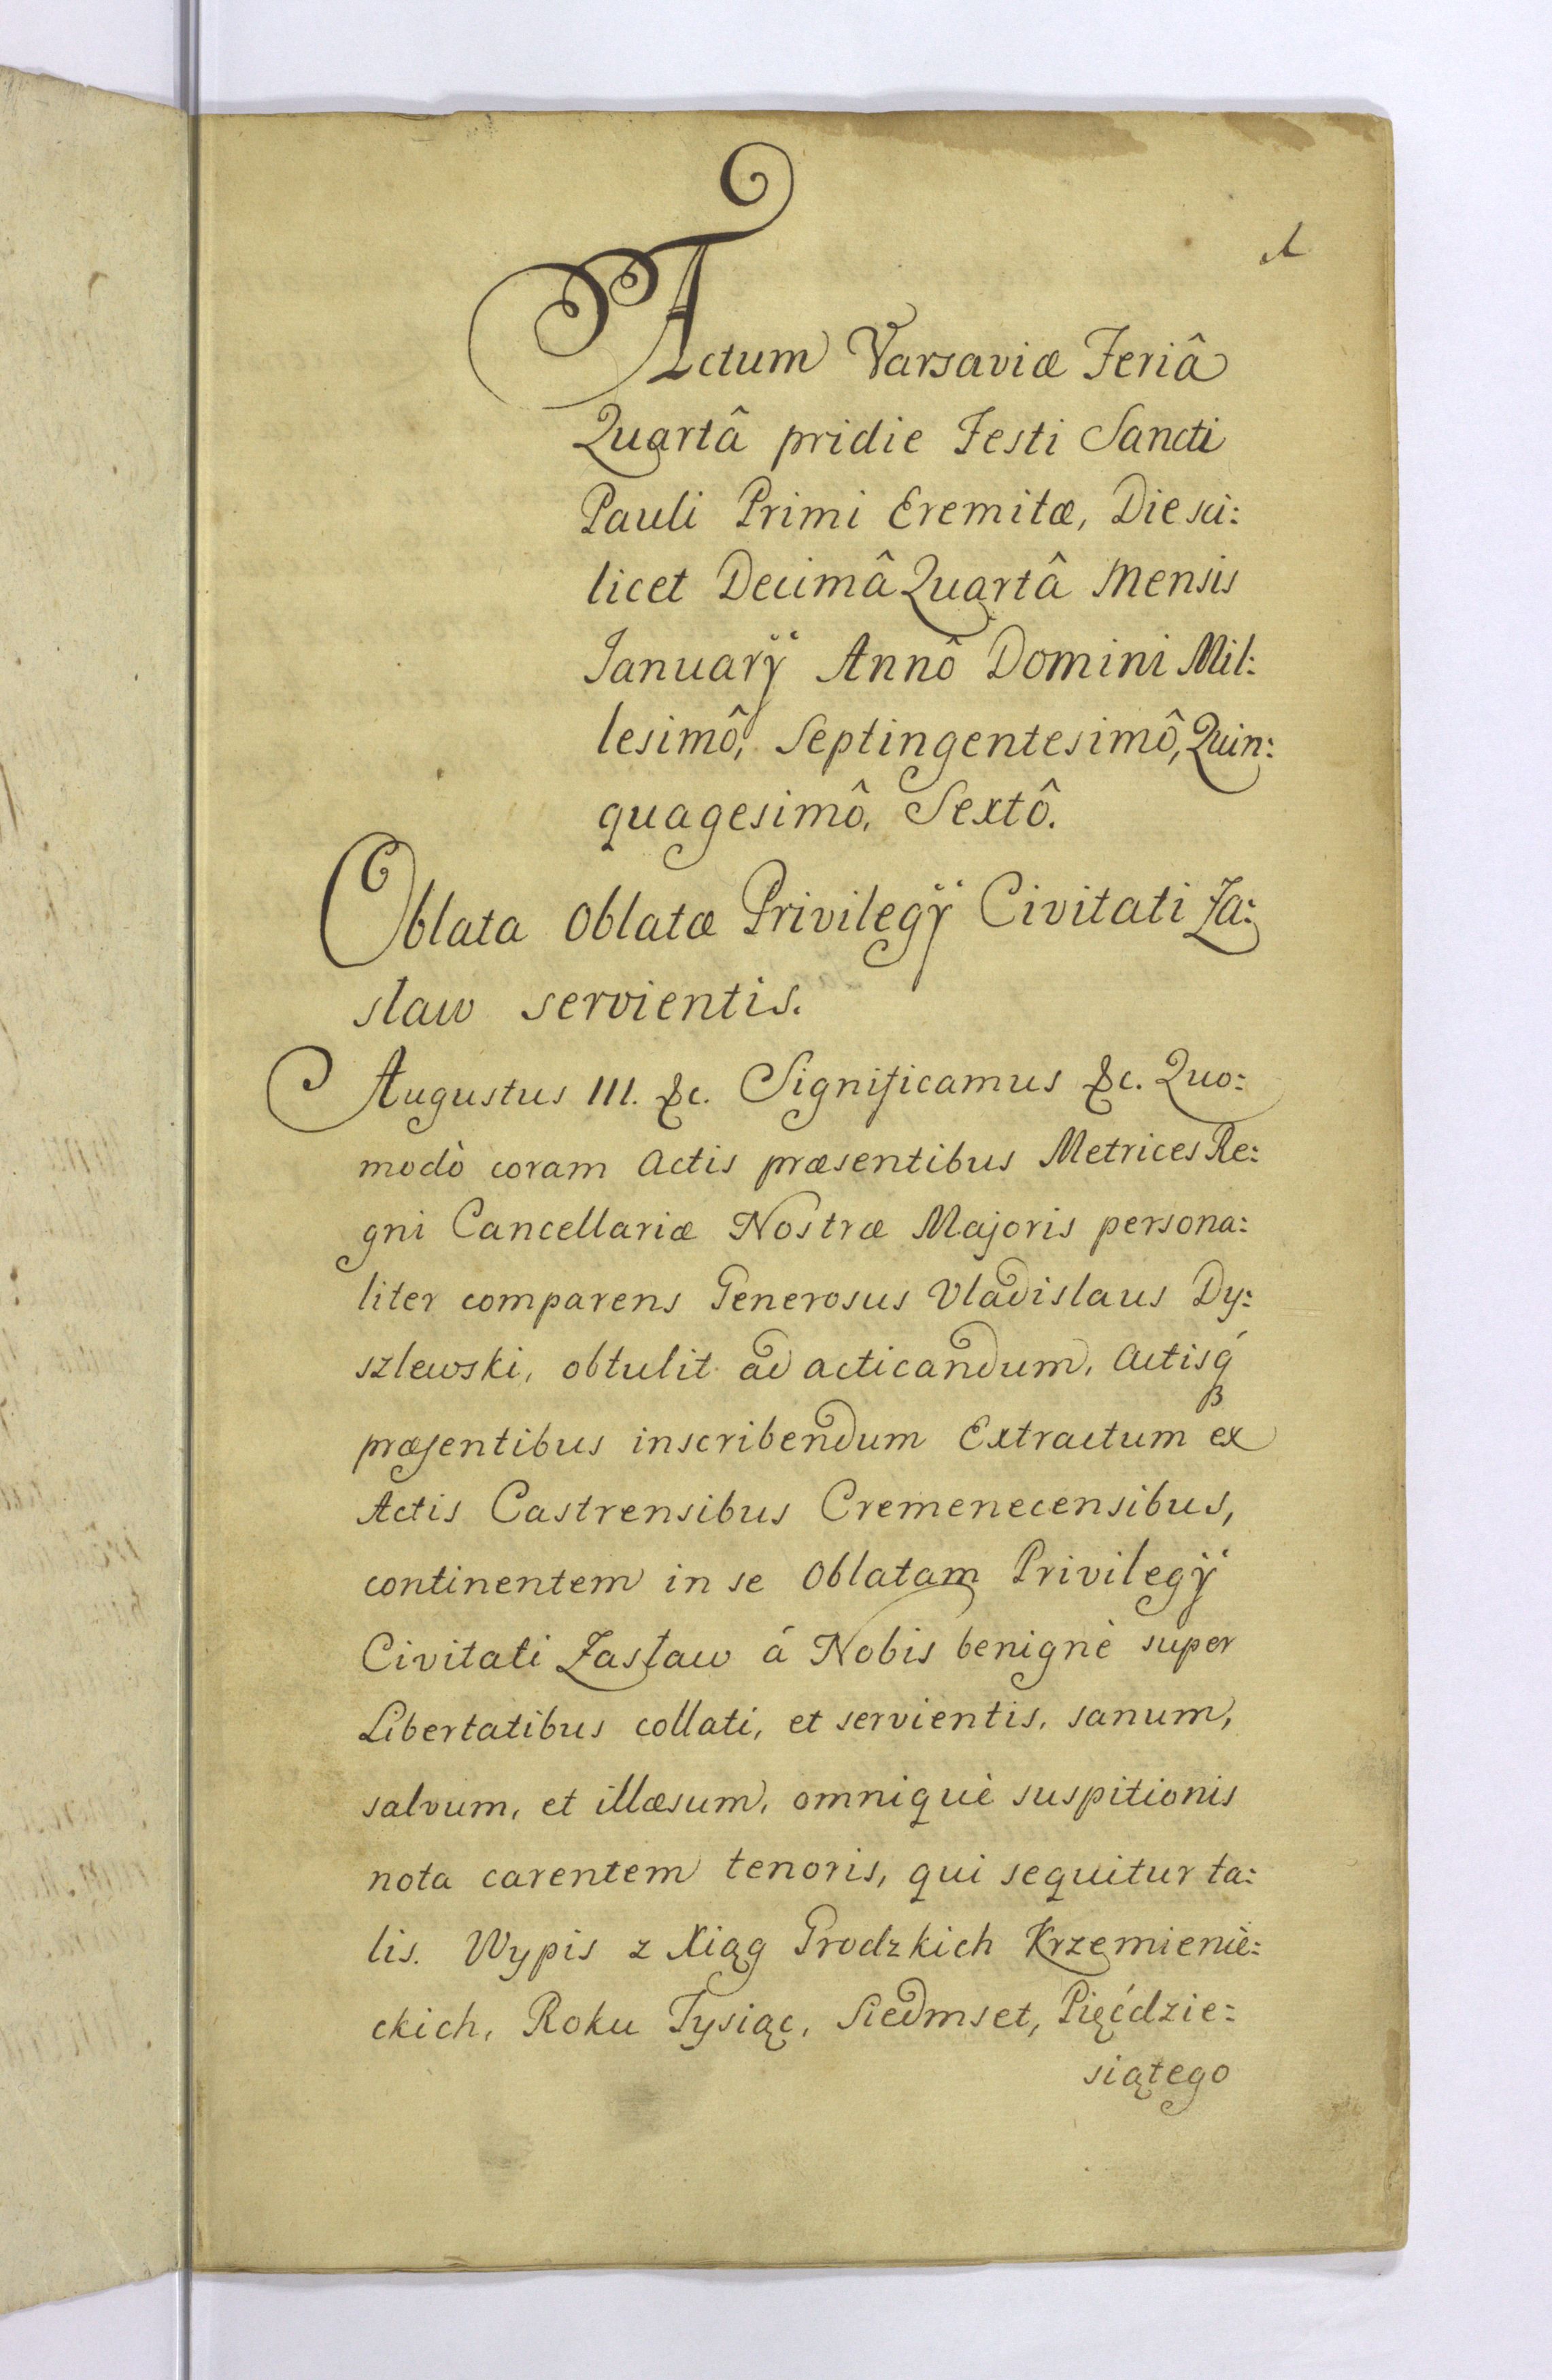 1
Actum Varsaviæ Feriâ
Quartâ pridie Festi Sancti
Pauli Primi Eremitæ, Die sci:
licet Decimâ Quartâ Mensis
Januarÿ Annô Domini Mil:
lesimô, Septingentesimô, Quin:
quagesimô, Sextô.
Oblata Oblatæ Privilegÿ Civitati Za:
slaw servientis.
Augustus III. &c. Significamus &c. Quo:
modò coram Actis præsentibus Metrices Re:
gni Cancellariæ Nostræ Majoris persona:
liter comparens Generosus Vladislaus Dy:
szlewski, obtulit ad acticandum, Actisq́
præsentibus inscribendum Extractum ex
Actis Castrensibus Cremenecensibus,
continentem in se Oblatam Privilegÿ
Civitati Zasław á Nobis benignè super
Libertatibus collati, et servientis, sanum,
salvum, et illæsum, omniquè suspitionis
nota carentem tenoris, qui sequitur ta:
lis. Wypis z Xiąg Grodzkich Krzemienie:
ckich, Roku Tysiąc, Siedmset, Pięćdzie:
siątego